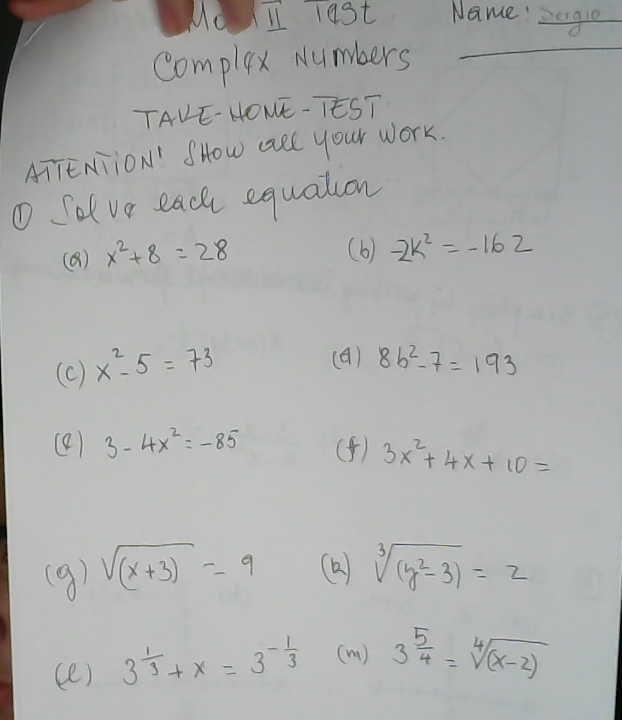 II Test Name: Sergio
Complex Numbers
TAKE-HOME-TEST
ATTENTION! SHOW all your work.
① Solve each equation
(a) x²+8 = 28 (b) -2k² = -162
(c) x²-5 = 73 (d) 8b²-7 = 193
(e) 3-4x² = -85 (f) 3x²+4x+10 =
(g) √(x+3) = 9 (k) ∛(y²-3) = 2
(l) 3^(1/3) + x = 3^(-1/3) (m) 3^(5/4) = ∜(x-2)